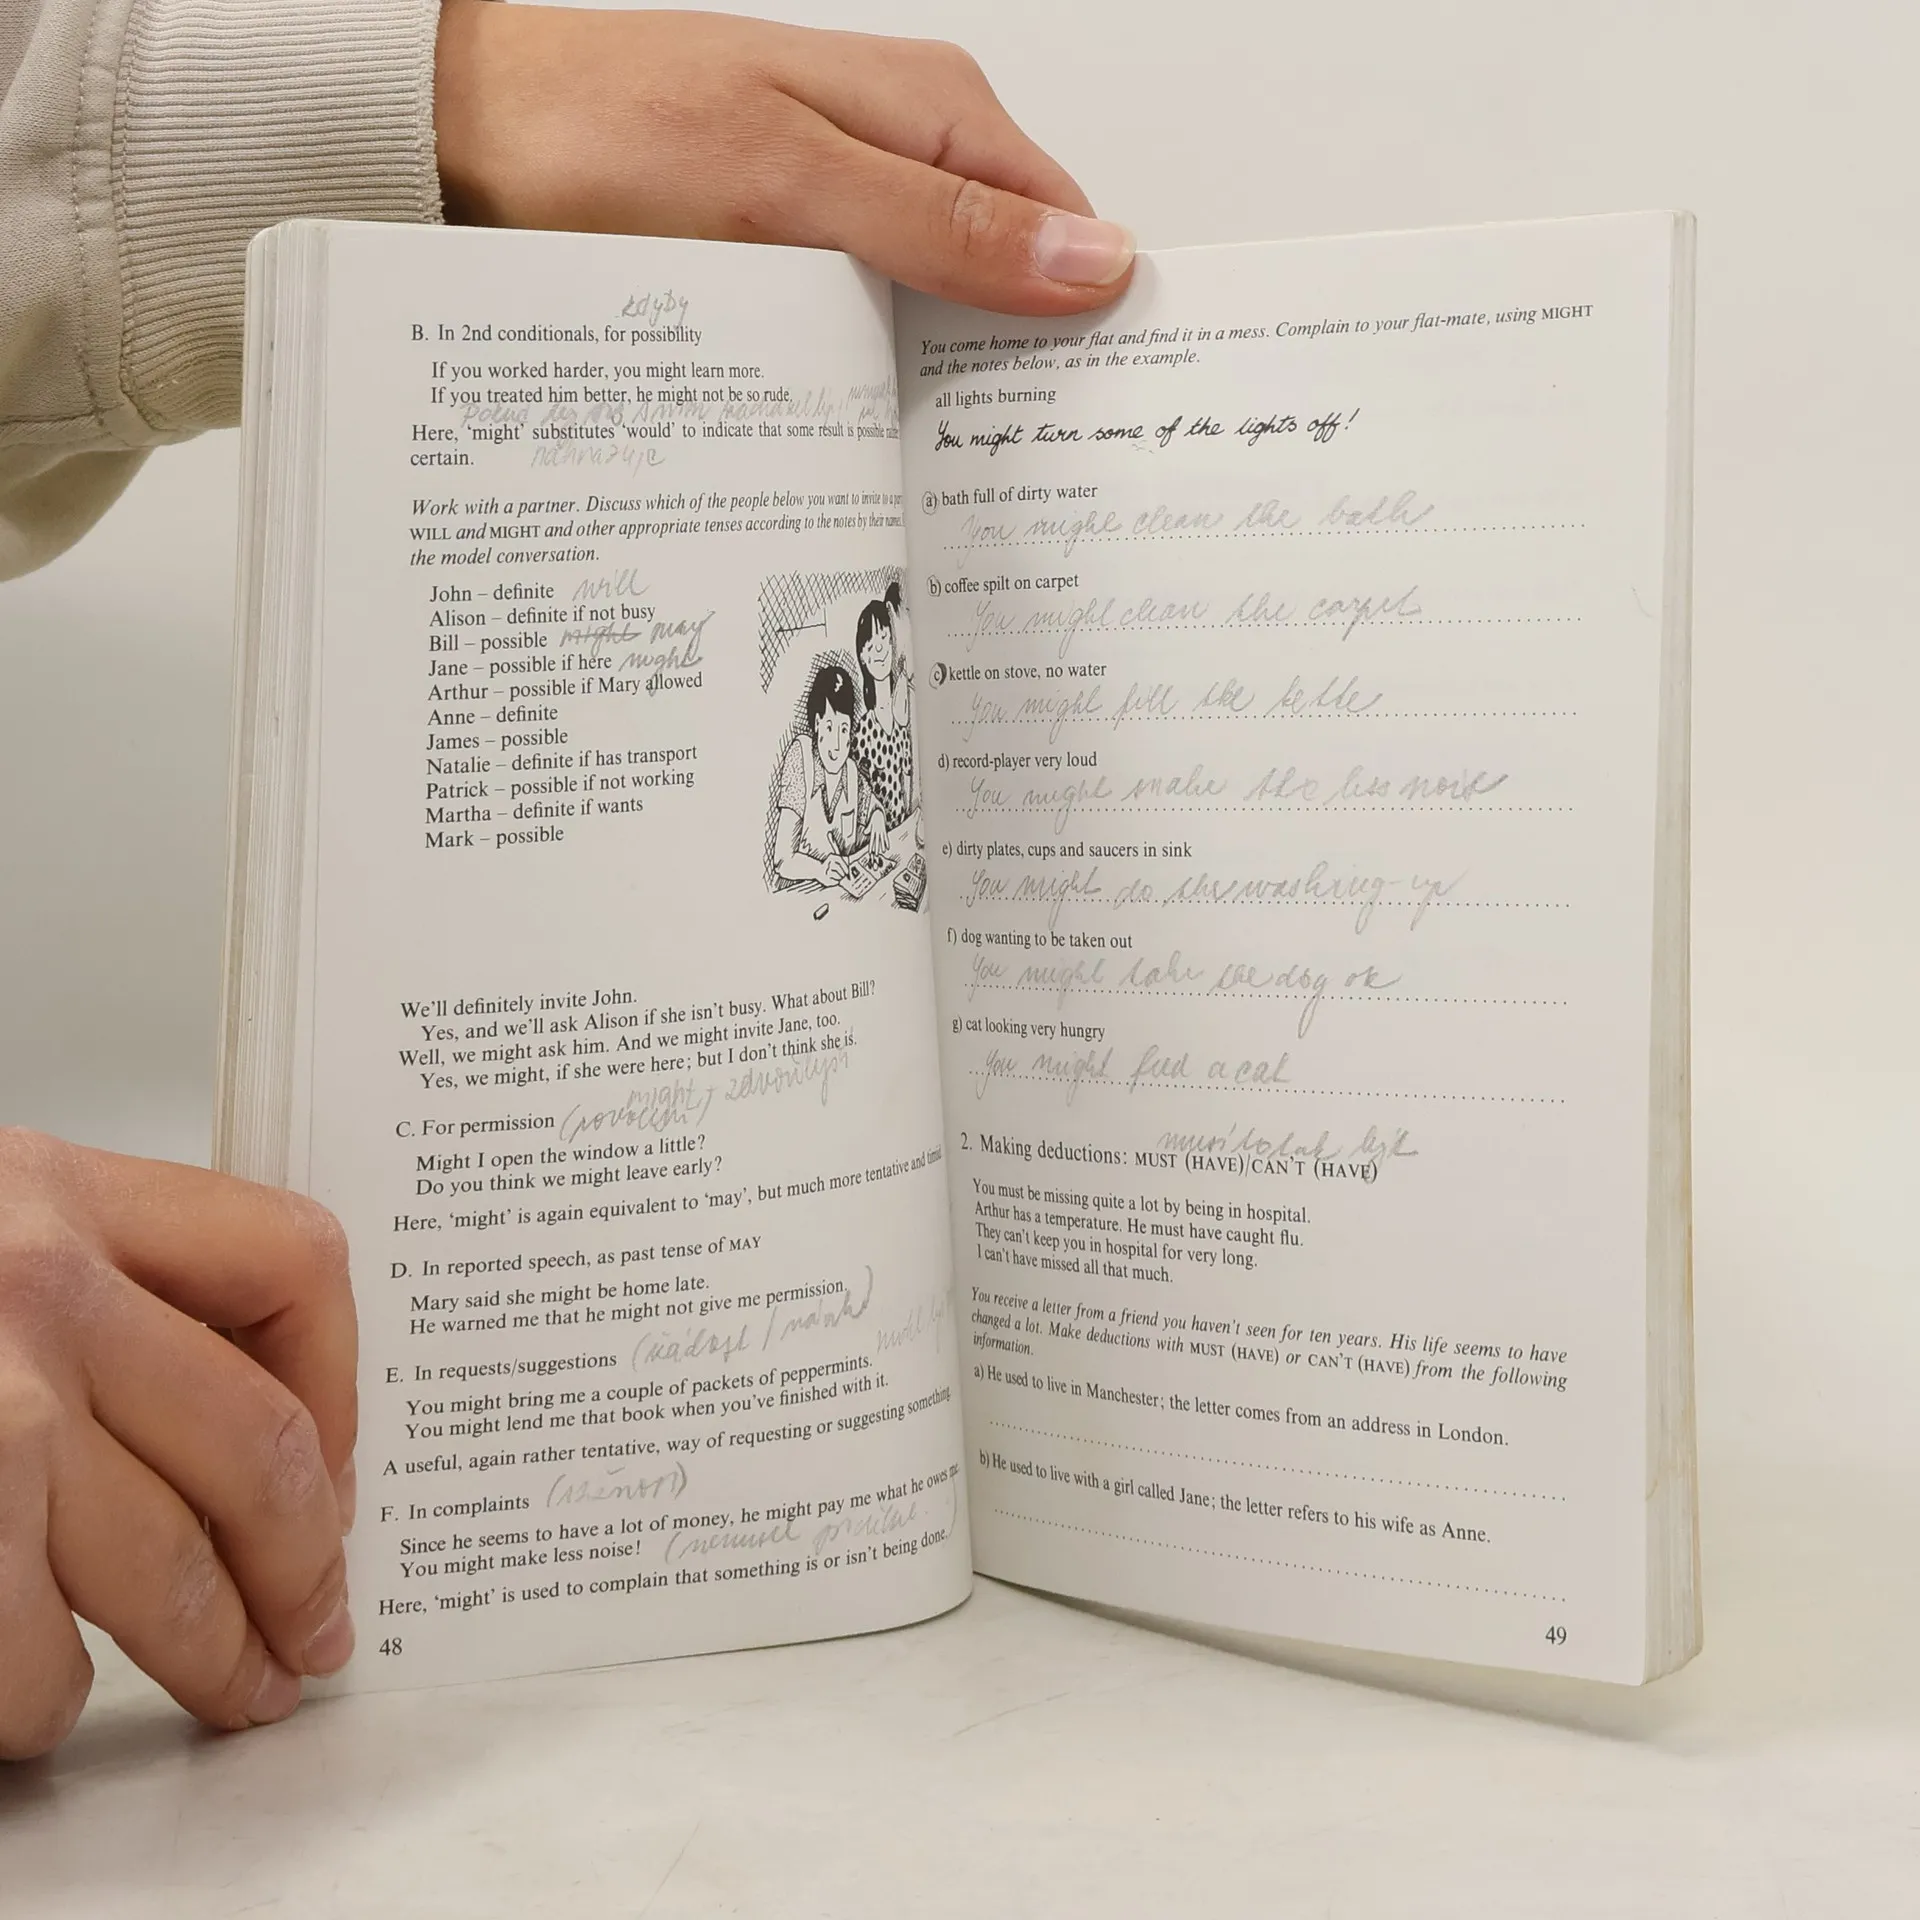 kdyby
B. In 2nd conditionals, for possibility
If you worked harder, you might learn more.
If you treated him better, he might not be so rude.
Here, ‘might’ substitutes ‘would’ to indicate that some result is possible
nahrazuje
certain.
Work with a partner. Discuss which of the people below you want to invite to a
WILL and MIGHT and other appropriate tenses according to the notes by their names.
the model conversation.
John – definite will
Alison – definite if not busy
Bill – possible might may
Jane – possible if here might
Arthur – possible if Mary allowed
Anne – definite
James – possible
Natalie – definite if has transport
Patrick – possible if not working
Martha – definite if wants
Mark – possible
We’ll definitely invite John.
Yes, and we’ll ask Alison if she isn’t busy. What about Bill?
Well, we might ask him. And we might invite Jane, too.
Yes, we might, if she were here; but I don’t think she is.
might
C. For permission
Might I open the window a little?
Do you think we might leave early?
Here, ‘might’ is again equivalent to ‘may’, but much more tentative and timid.
D. In reported speech, as past tense of MAY
Mary said she might be home late.
He warned me that he might not give me permission.
E. In requests/suggestions
You might bring me a couple of packets of peppermints.
You might lend me that book when you’ve finished with it.
A useful, again rather tentative, way of requesting or suggesting something.
F. In complaints
Since he seems to have a lot of money, he might pay me what he owes me.
You might make less noise!
Here, ‘might’ is used to complain that something is or isn’t being done.
48
You come home to your flat and find it in a mess. Complain to your flat-mate, using MIGHT
and the notes below, as in the example.
all lights burning
You might turn some of the lights off!
a) bath full of dirty water
You might clean the bath
b) coffee spilt on carpet
You might clean the carpet
c) kettle on stove, no water
You might fill the kettle
d) record-player very loud
You might make the less noise
e) dirty plates, cups and saucers in sink
You might do the washing-up
f) dog wanting to be taken out
You might take the dog
g) cat looking very hungry
You might feed a cat
musí to tak být
2. Making deductions: MUST (HAVE)/CAN’T (HAVE)
You must be missing quite a lot by being in hospital.
Arthur has a temperature. He must have caught flu.
They can’t keep you in hospital for very long.
I can’t have missed all that much.
You receive a letter from a friend you haven’t seen for ten years. His life seems to have
changed a lot. Make deductions with MUST (HAVE) or CAN’T (HAVE) from the following
information.
a) He used to live in Manchester; the letter comes from an address in London.
b) He used to live with a girl called Jane; the letter refers to his wife as Anne.
49